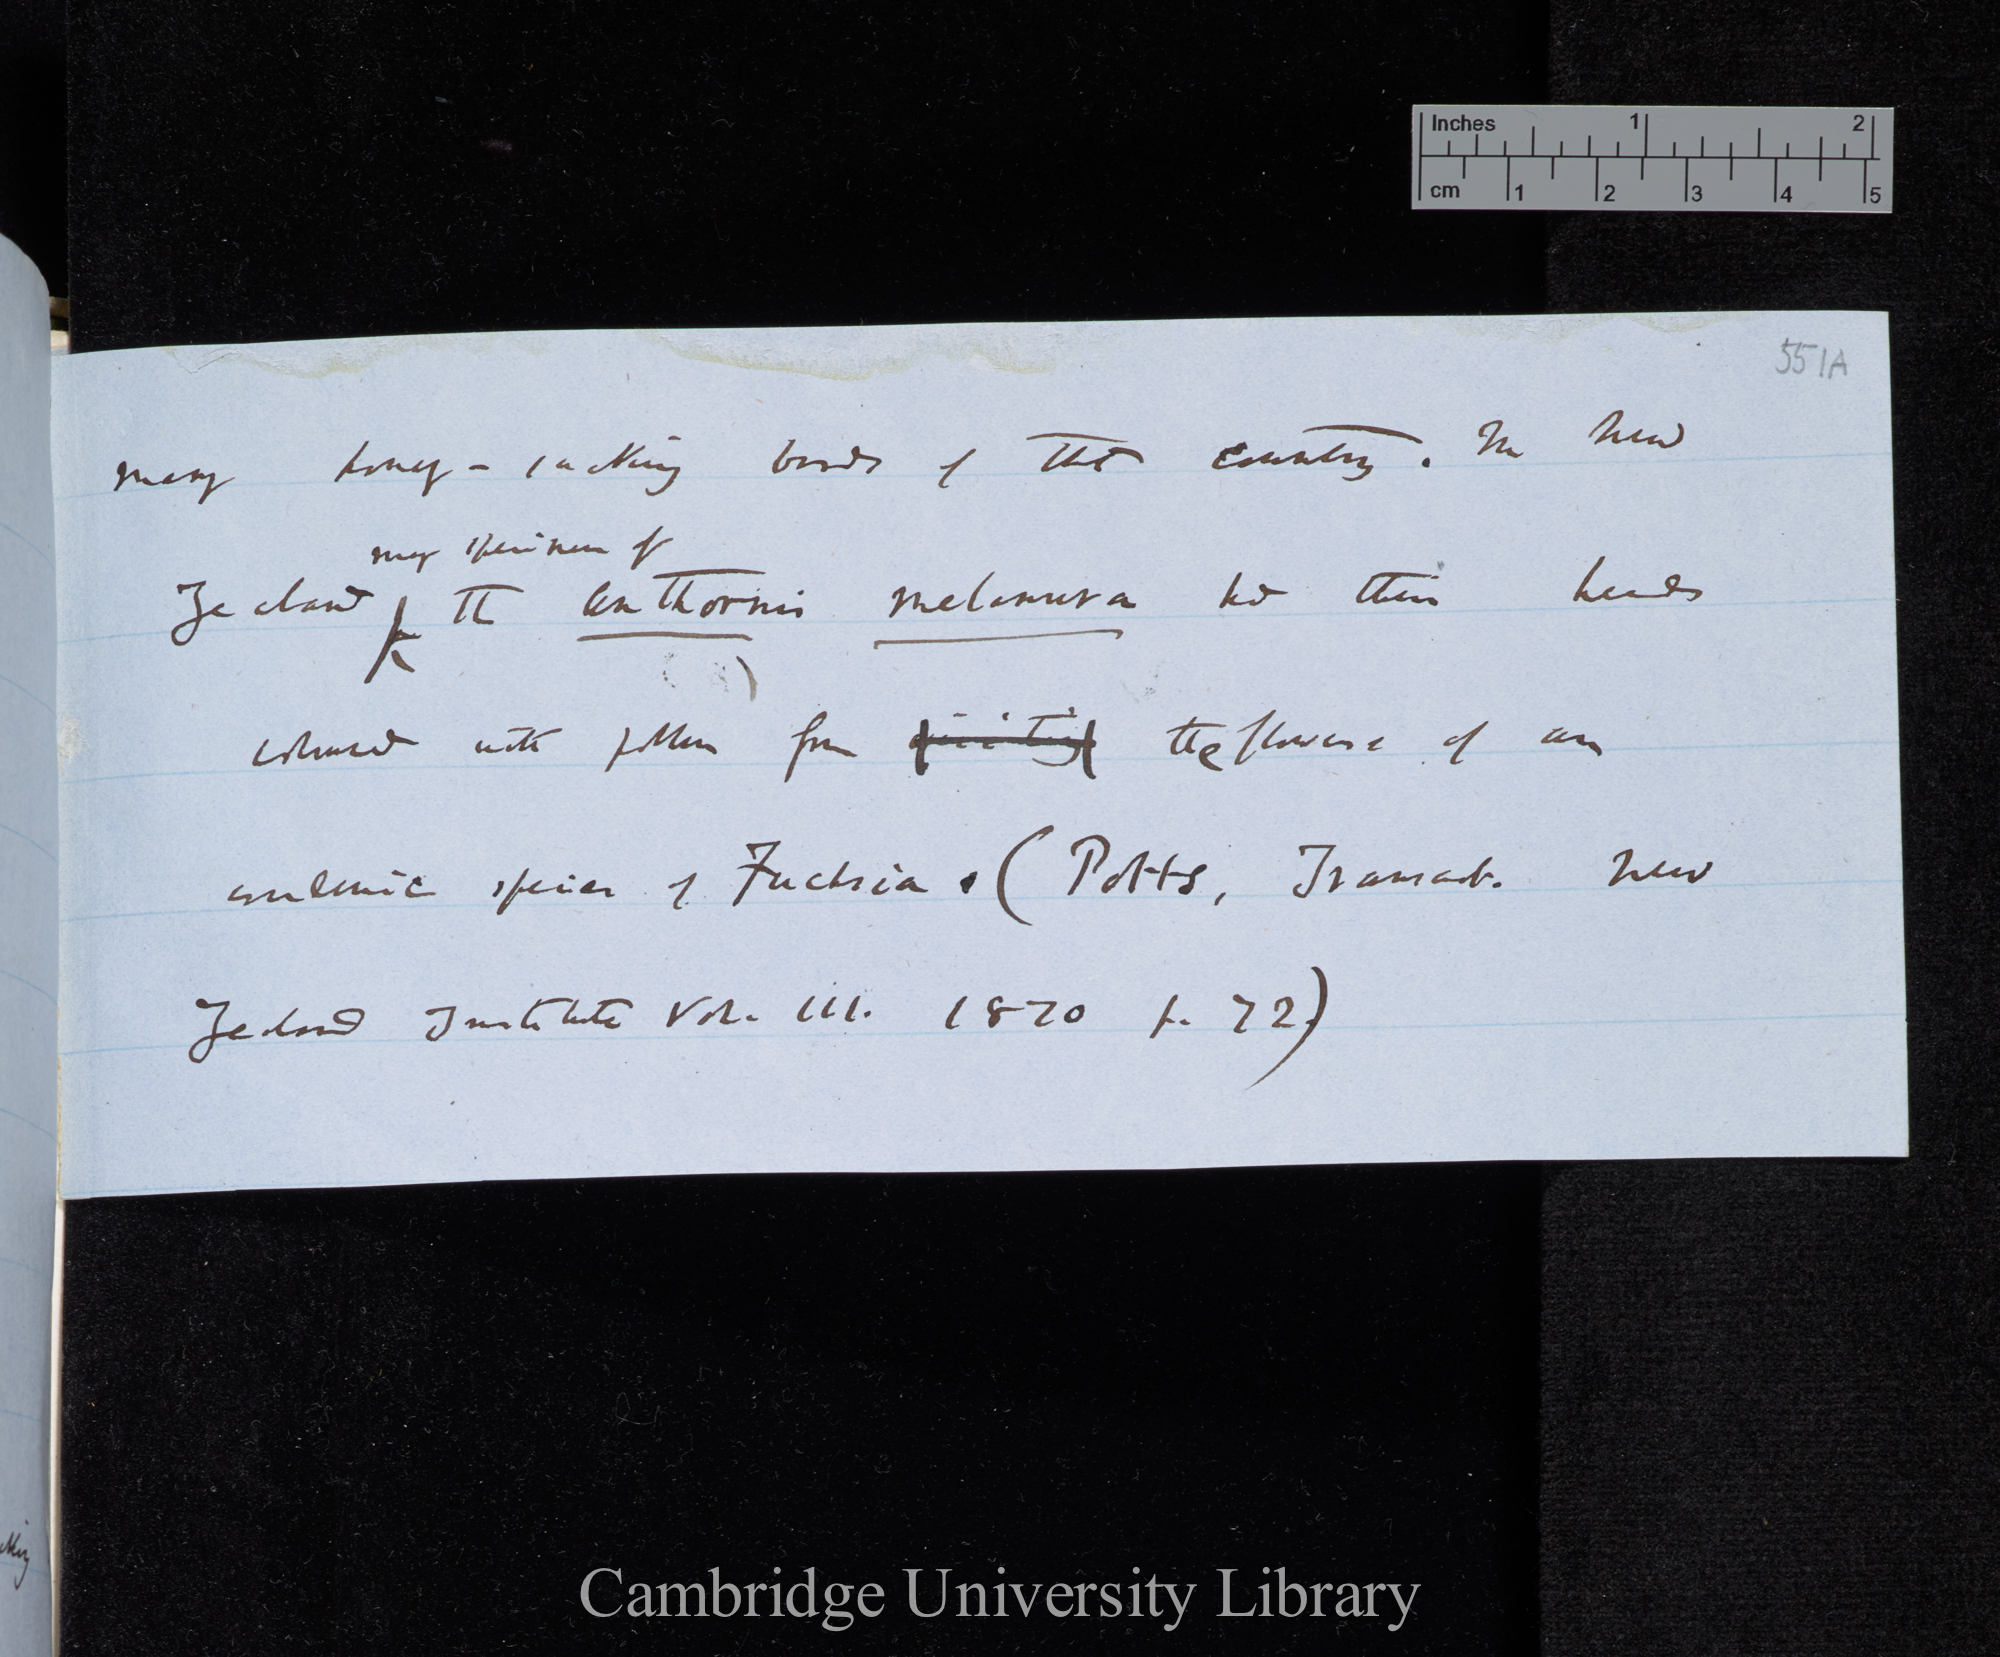 Inches 1 2
cm 1 2 3 4 5
551A
many honey-sucking birds of that country. In New
many specimens of
Zealand the Anthornis melanura had their heads
coloured with pollen from visiting the flowers of an
endemic species of Fuchsia. (Potts, Transact. New
Zealand Institute Vol. III. 1870 p. 72.)
Cambridge University Library